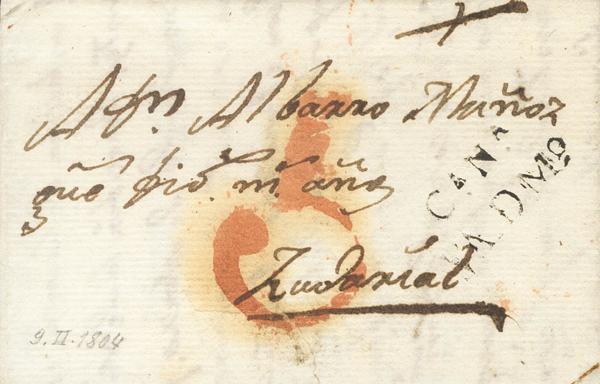 A Dn. Albarro Muñoz
que Dios m. añs
Ciudarial
CANA
M. D Mo
5
9.II.1804